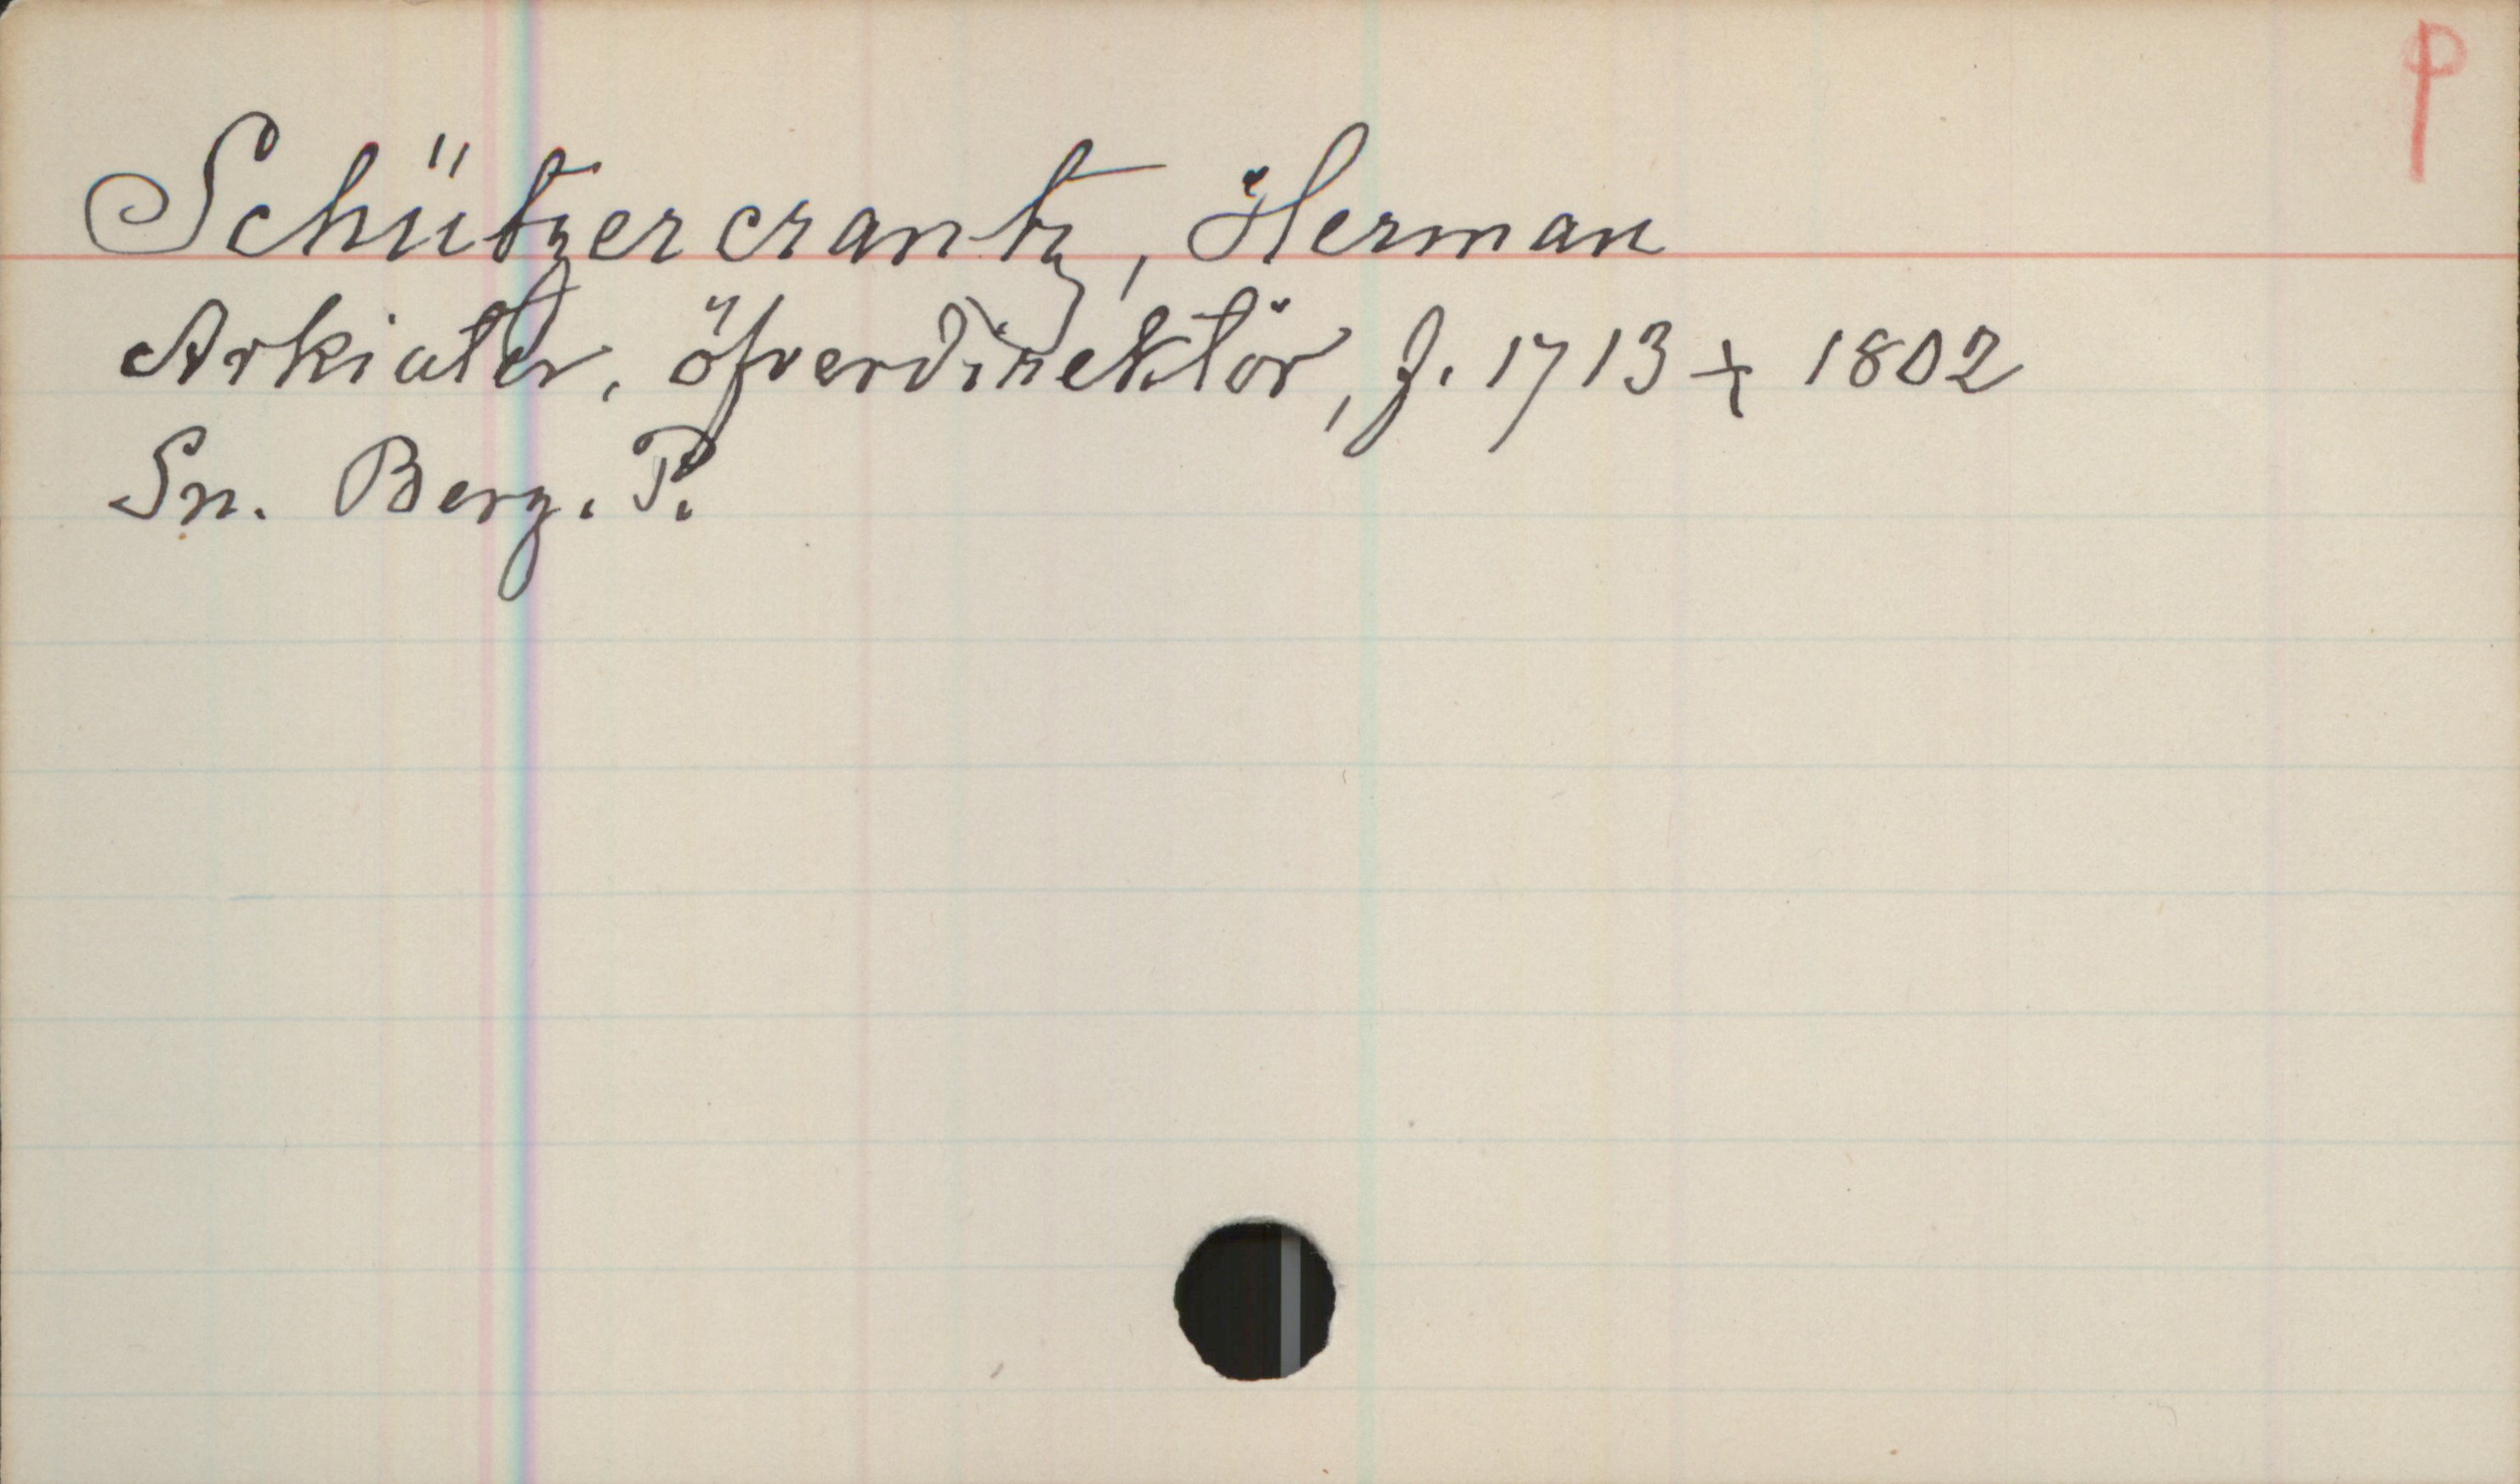 P
Schützercrantz, Herman
Arkiater, öfverdirektör, f. 1713 + 1802
Sn. Berg. P.